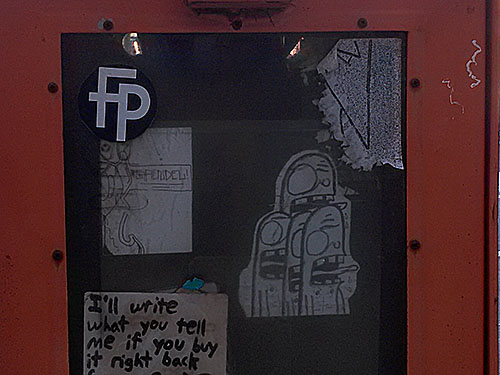 FP
I'll write
what you tell
me if you buy
it right back